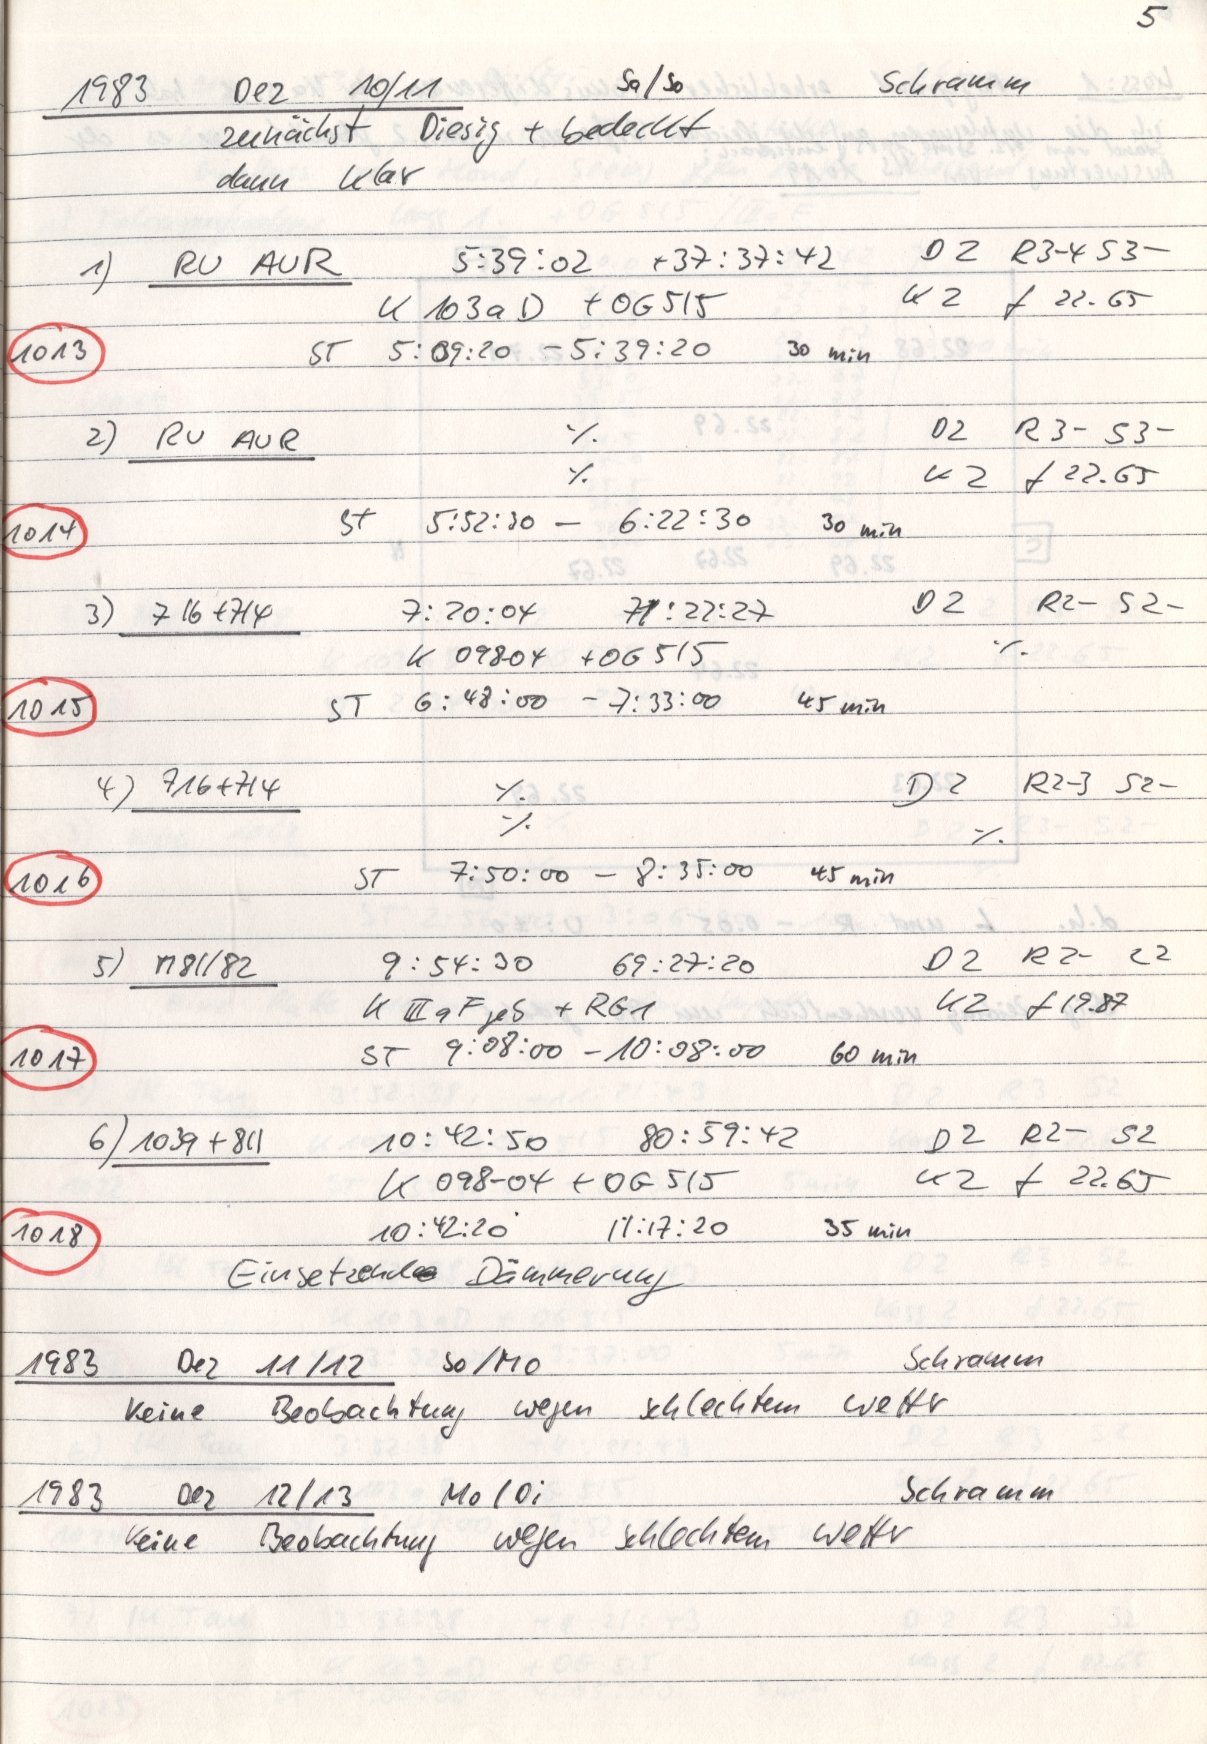 5
1983 Dez 10/11 Sa/So Schramm
zunächst Diesig + bedeckt
dann klar
1) RU AUR 5:39:02 +37:37:42 D2 R3-4 S3-
K 103aD + OG515 K2 f 22.65
1013 ST 5:09:20 - 5:39:20 30 min
2) RU AUR ./. D2 R3- S3-
./. K2 f 22.65
1014 ST 5:52:30 - 6:22:30 30 min
3) 716+714 7:20:04 71:22:27 D2 R2- S2-
K 09804 + OG515 ./.
1015 ST 6:48:00 - 7:33:00 45 min
4) 716+714 ./. D2 R2-3 S2-
./. ./.
1016 ST 7:50:00 - 8:35:00 45 min
5) M81/82 9:54:30 69:27:20 D2 R2- S2
K IIIaF + RG1 K2 f 19.87
1017 ST 9:08:00 - 10:08:00 60 min
6) 1039+811 10:42:50 80:59:42 D2 R2- S2
K 098-04 + OG515 K2 f 22.65
1018 10:42:20 11:17:20 35 min
Einsetzende Dämmerung
1983 Dez 11/12 So/Mo Schramm
Keine Beobachtung wegen schlechtem Wettr
1983 Dez 12/13 Mo/Di Schramm
Keine Beobachtung wegen schlechtem Wettr